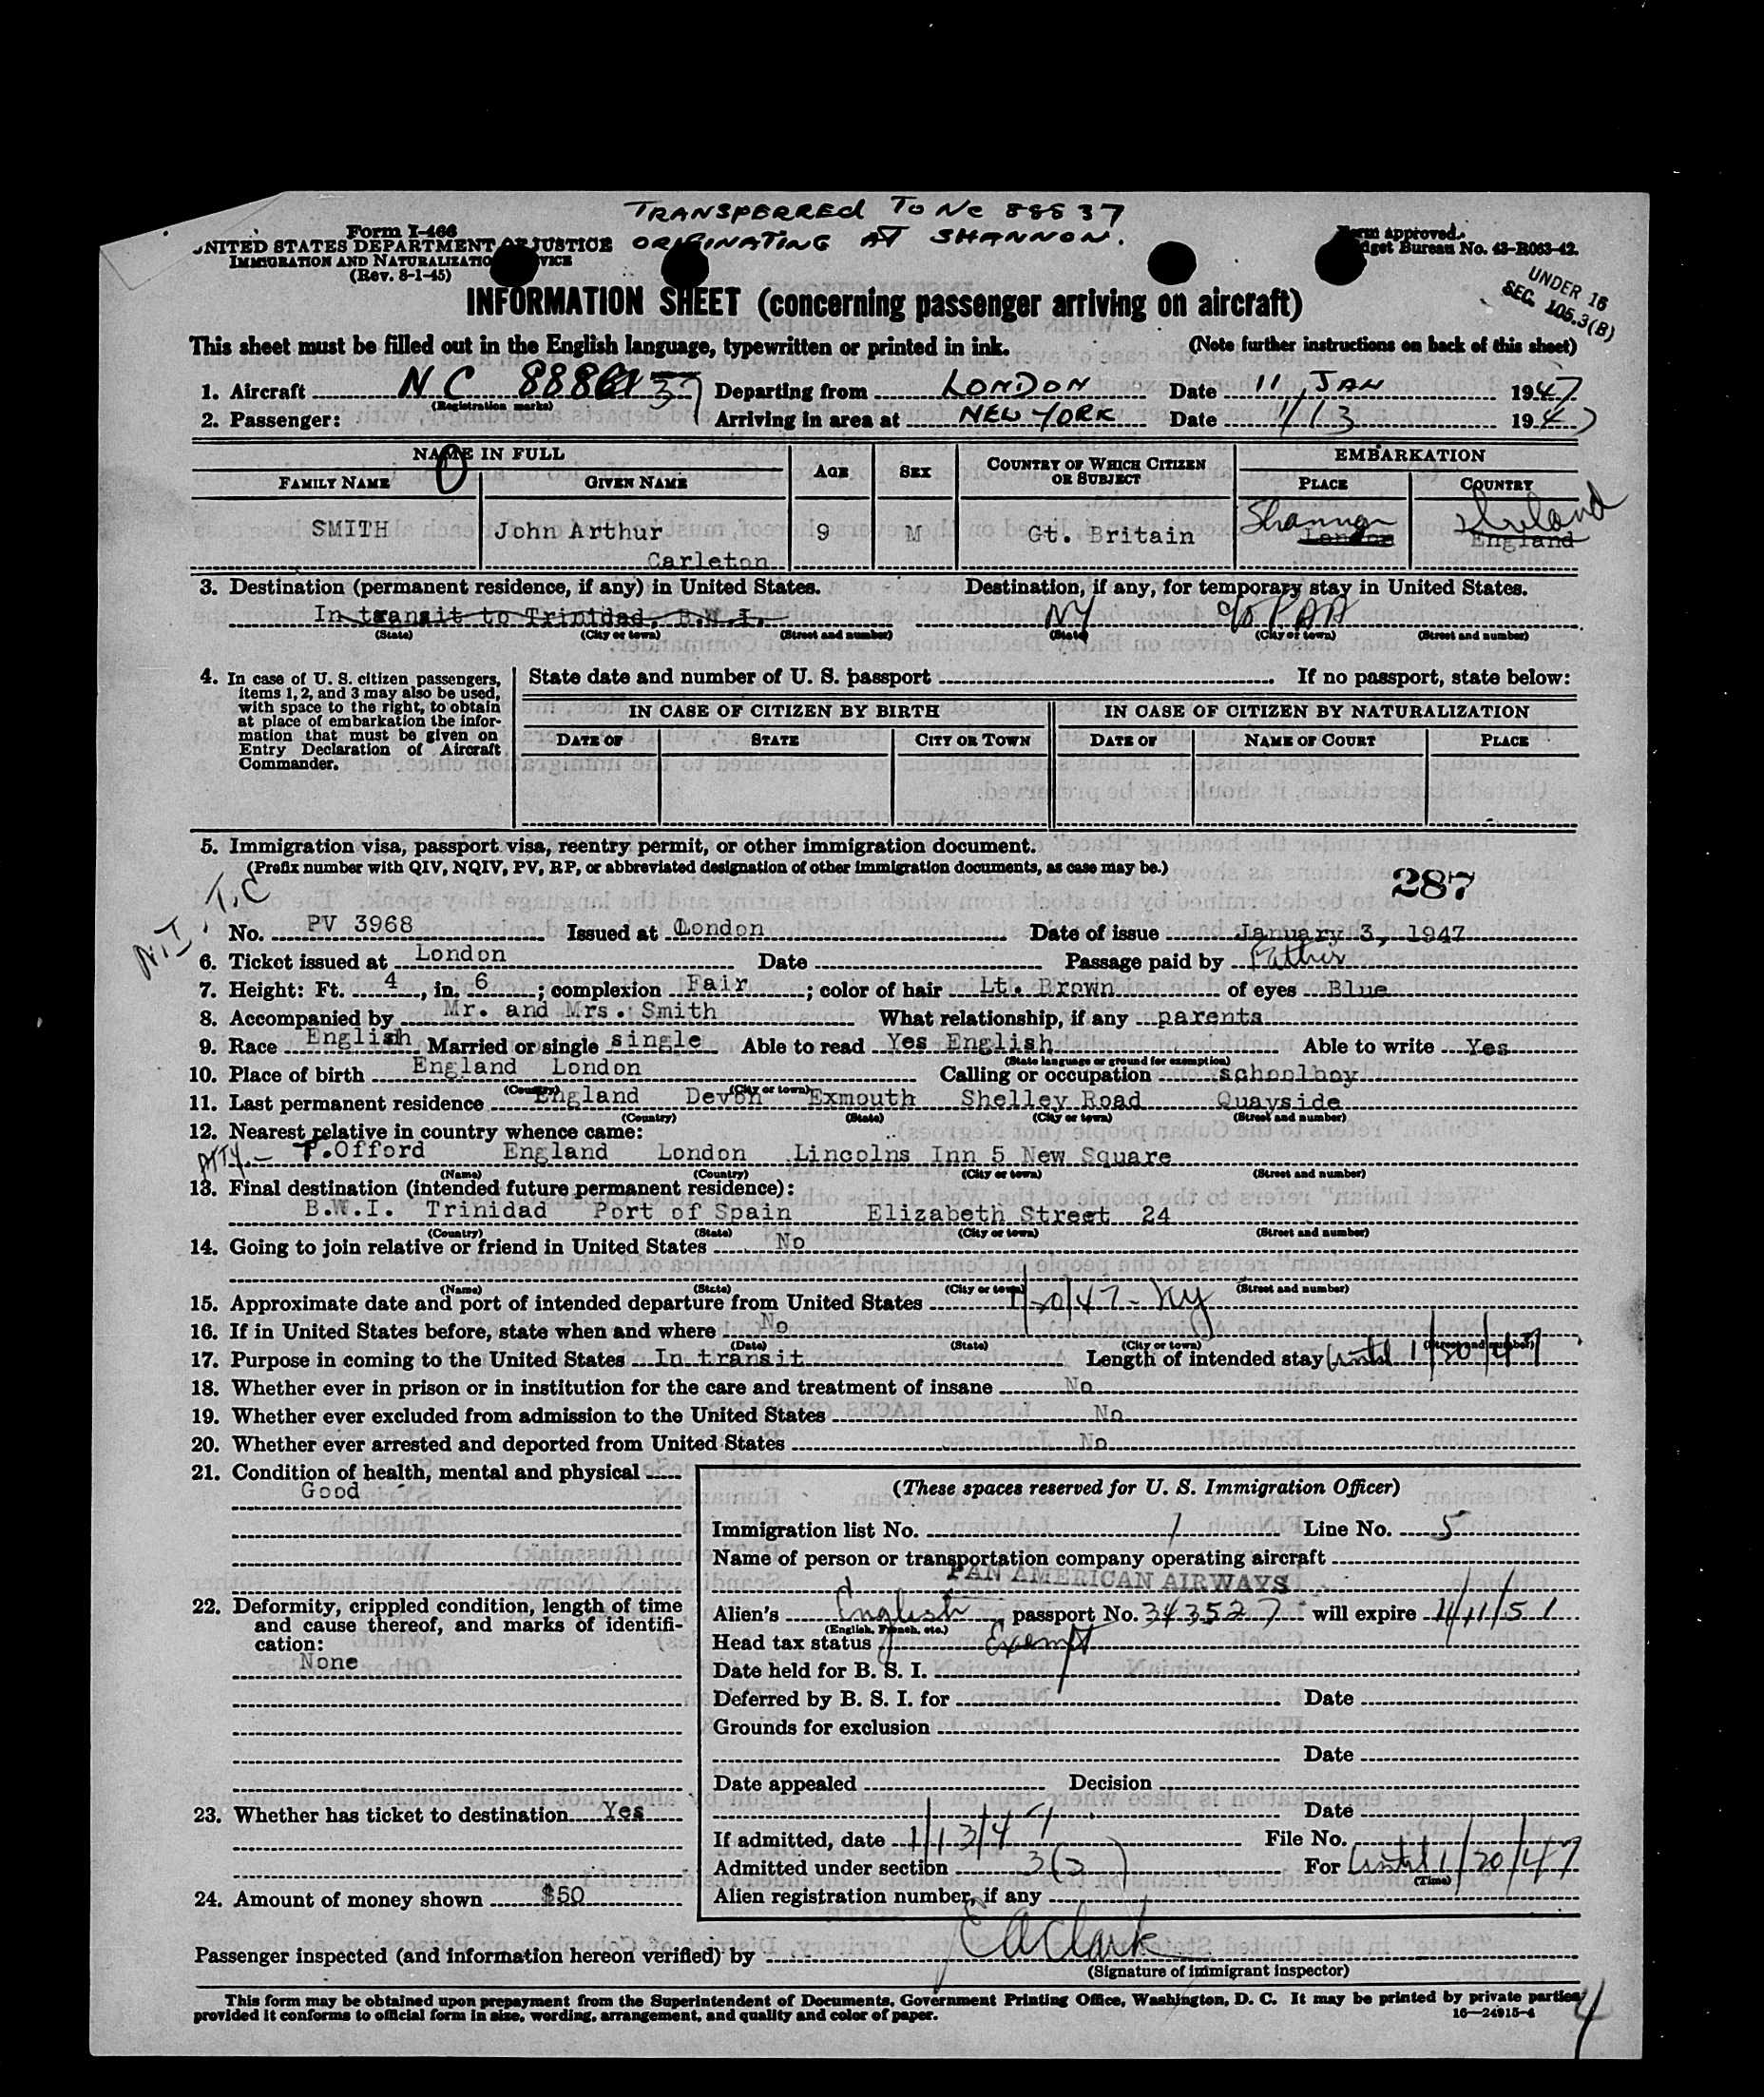 TRANSFERRED TO NC 88837
ORIGINATING AT SHANNON.
Form I-466
UNITED STATES DEPARTMENT OF JUSTICE
IMMIGRATION AND NATURALIZATION SERVICE
(Rev. 8-1-45)
Form approved.
Budget Bureau No. 43-R063-42.
UNDER 16
SEC. 105.3(B)
INFORMATION SHEET (concerning passenger arriving on aircraft)
This sheet must be filled out in the English language, typewritten or printed in ink. (Note further instructions on back of this sheet)
1. Aircraft NC 888 37 Departing from LONDON Date 11 JAN 1947
(Registration marks)
2. Passenger: Arriving in area at NEW YORK Date 1/13 1947
NAME IN FULL AGE SEX COUNTRY OF WHICH CITIZEN OR SUBJECT EMBARKATION
FAMILY NAME GIVEN NAME PLACE COUNTRY
Shannon Ireland
SMITH John Arthur 9 M Gt. Britain London England
Carleton
3. Destination (permanent residence, if any) in United States. Destination, if any, for temporary stay in United States.
In transit to Trinidad, B.W.I. NY c/o PAA
(State) (City or town) (Street and number) (State) (City or town) (Street and number)
4. In case of U. S. citizen passengers, items 1, 2, and 3 may also be used, with space to the right, to obtain at place of embarkation the information that must be given on Entry Declaration of Aircraft Commander.
State date and number of U. S. passport If no passport, state below:
IN CASE OF CITIZEN BY BIRTH IN CASE OF CITIZEN BY NATURALIZATION
DATE OF STATE CITY OR TOWN DATE OF NAME OF COURT PLACE
5. Immigration visa, passport visa, reentry permit, or other immigration document.
(Prefix number with QIV, NQIV, PV, RP, or abbreviated designation of other immigration documents, as case may be.)
287
T.C
N.I.
No. PV 3968 Issued at London Date of issue January 3, 1947
6. Ticket issued at London Date Passage paid by Father
7. Height: Ft. 4, in. 6; complexion Fair; color of hair Lt. Brown of eyes Blue
8. Accompanied by Mr. and Mrs. Smith What relationship, if any parents
9. Race English Married or single single Able to read Yes English Able to write Yes
(State language or ground for exemption)
10. Place of birth England London Calling or occupation schoolboy
(Country) (City or town)
11. Last permanent residence England Devon Exmouth Shelley Road Quayside
(Country) (State) (City or town) (Street and number)
12. Nearest relative in country whence came:
ATTY.- T.Offord England London Lincolns Inn 5 New Square
(Name) (Country) (City or town) (Street and number)
13. Final destination (intended future permanent residence):
B.W.I. Trinidad Port of Spain Elizabeth Street 24
(Country) (State) (City or town) (Street and number)
14. Going to join relative or friend in United States No
(Name) (State) (City or town) (Street and number)
15. Approximate date and port of intended departure from United States 1/20/47 - NY
16. If in United States before, state when and where No
(Date) (State) (City or town) (Street and number)
17. Purpose in coming to the United States In transit Length of intended stay Until 1/20/47
18. Whether ever in prison or in institution for the care and treatment of insane No
19. Whether ever excluded from admission to the United States No
20. Whether ever arrested and deported from United States No
21. Condition of health, mental and physical
Good
22. Deformity, crippled condition, length of time and cause thereof, and marks of identification:
None
23. Whether has ticket to destination Yes
24. Amount of money shown $50
(These spaces reserved for U. S. Immigration Officer)
Immigration list No. 1 Line No. 5
Name of person or transportation company operating aircraft
PAN AMERICAN AIRWAYS
Alien's English passport No. 343527 will expire 11/11/51
(English, French, etc.)
Head tax status Exempt
Date held for B. S. I.
Deferred by B. S. I. for Date
Grounds for exclusion
Date
Date appealed Decision
Date
If admitted, date 1/13/47 File No.
Admitted under section 3(2) For Until 1/20/47
(Time)
Alien registration number, if any
Passenger inspected (and information hereon verified) by CA Clark
(Signature of immigrant inspector)
This form may be obtained upon prepayment from the Superintendent of Documents, Government Printing Office, Washington, D. C. It may be printed by private parties
provided it conforms to official form in size, wording, arrangement, and quality and color of paper.
16—24915-4
4